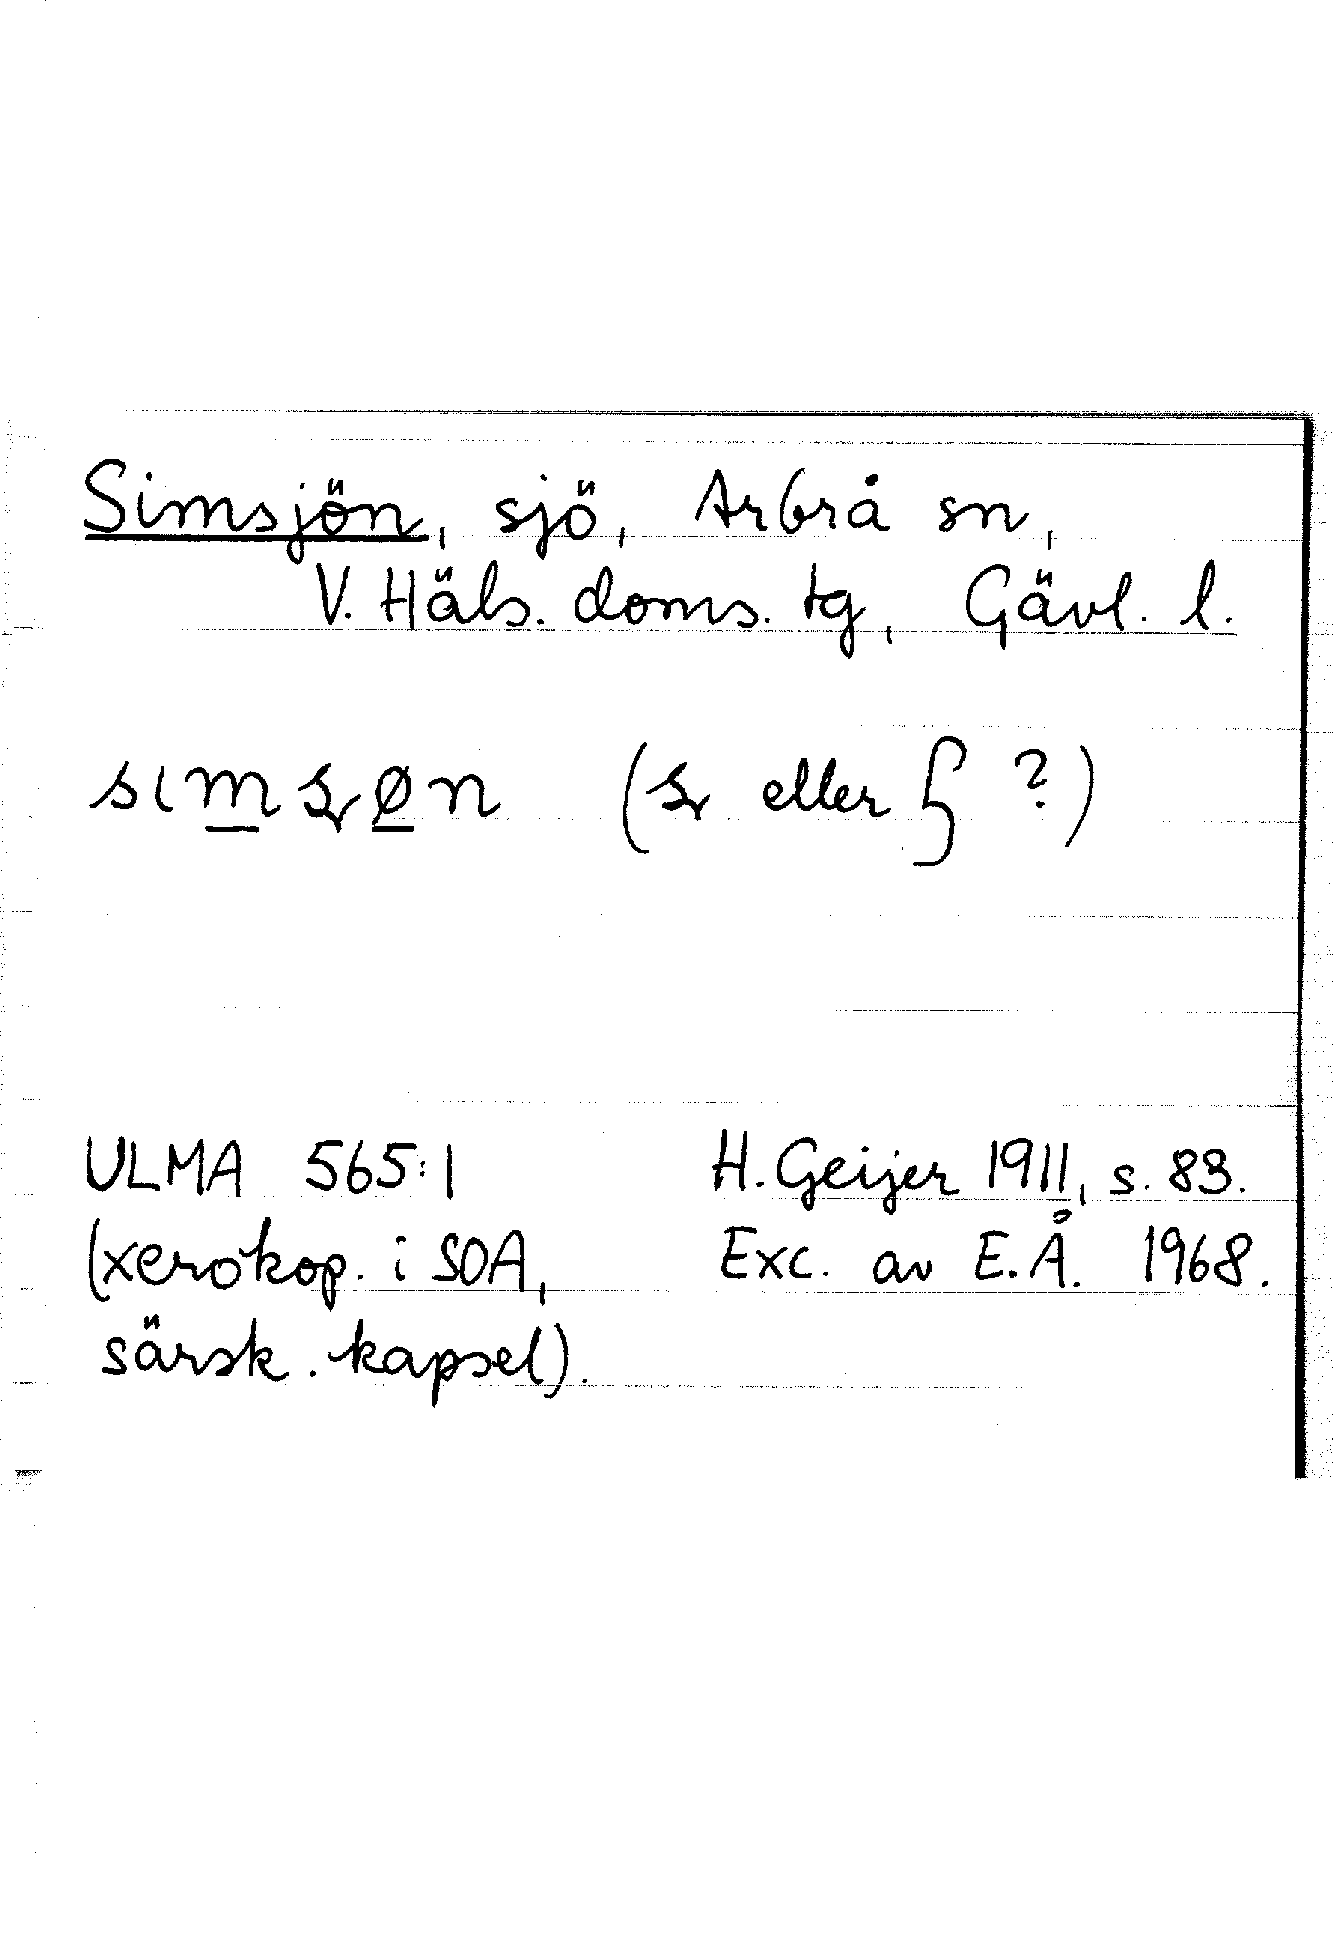 Simsjön, sjö, Arbrå sn,
V. Häls. doms. tg, Gävl. l.
eller ?)
ULMA 565:1
(xerokop. i SOA,
särsk. kapsel).
H. Geijer 1911, s. 83.
Exc. av E.Å. 1968.